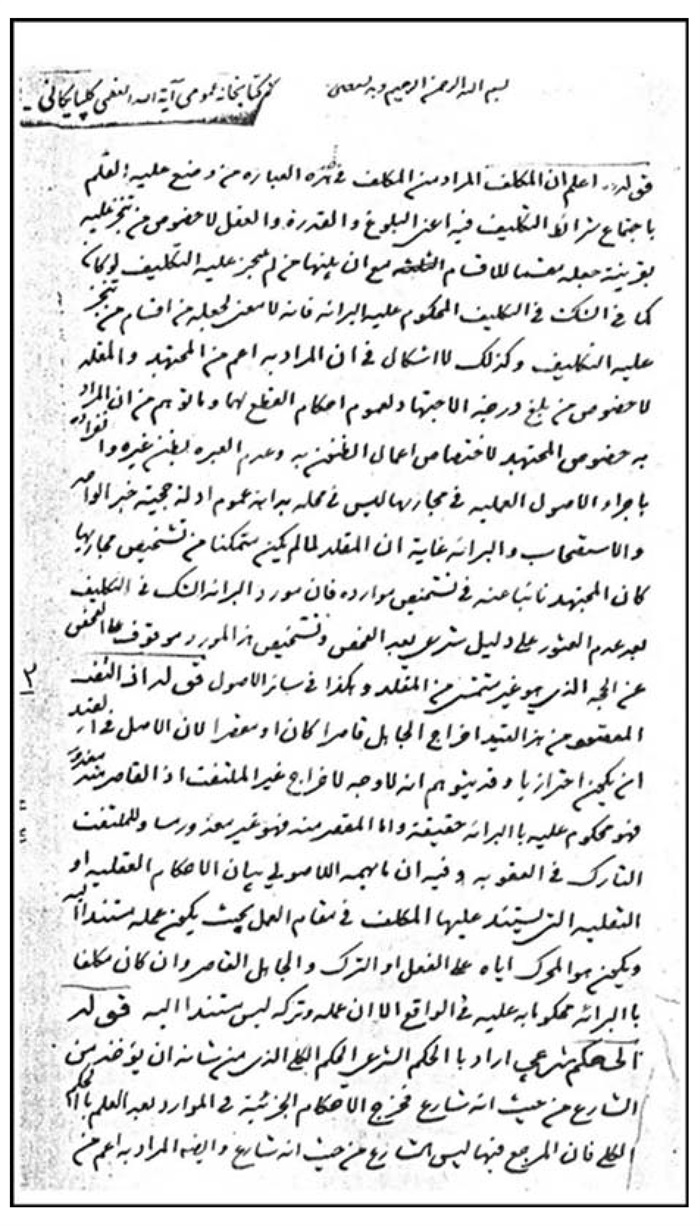 بسم الله الرحمن الرحیم وبه نستعین
کتابخانه عمومی آیة الله العظمی گلپایگانی
قوله اعلم ان المکلف المراد من المکلف فی هذه العباره من وضع علیه القلم
باجتماع شرائط التکلیف فیه اعنی البلوغ و القدرة والعقل لا خصوص من تنجز علیه
بقرینة جعله مقسما للاقسام الثلثه مع ان بینها من لم یتنجز علیه التکلیف لو کان
کما فی الشک فی التکلیف المحکوم علیه البرائه فانه لا معنی لجعله من اقسام من تنجز
علیه التکلیف وکذلک لا اشکال فی ان المراد به اعم من المجتهد والمقلد
لا خصوص من بلغ درجة الاجتهاد لعموم احکام القطع لهما وما توهم من ان المراد
به خصوص المجتهد لاختصاص اعمال الظنون به وعدم العبره بظن غیره وانفراده
باجراء الاصول العملیه فی مجاریها لیس فی محله بداهة عموم ادلة حجیة خبر الواحد
والاستصحاب والبرائه غایة ان المقلد لما لم یکن متمکنا من تشخیص مجاریها
کان المجتهد نائبا عنه فی تشخیص موارده فان مورد البرائه الشک فی التکلیف
بعد عدم العثور علی دلیل شرعی بعد الفحص وتشخیص هذا المورد موقوف علی الفحص
عن الحجة الذی هو غیر متمش من المقلد وهکذا فی سائر الاصول قوله اذا التفت
المقصود من هذا القید اخراج الجاهل قاصرا کان او مقصرا لان الاصل فی القید
ان یکون احترازیا وقد یتوهم انه لا وجه لاخراج غیر الملتفت اذ القاصر منه معذور
فهو محکوم علیه بالبرائه حقیقة واما المقصر منه فهو غیر معذور ومساو للملتفت
التارک فی العقوبه وفیه ان ما یهمه الاصولی بیان الاحکام العقلیه او
النقلیه التی یستند علیها المکلف فی مقام العمل بحیث یکون عمله مستندا الیه
ویکون هو المحرک ایاه علی الفعل او الترک والجاهل القاصر وان کان مکلفا
بالبرائه محکوما به علیه فی الواقع الا ان عمله وترکه لیس مستندا الیه قوله
الی حکم شرعی اراد بالحکم الشرعی الحکم الکلی الذی من شانه ان یؤخذ من
الشارع من حیث انه شارع فخرج الاحکام الجزئیة فی الموارد بعد العلم بالحکم
الکلی فان المرجع فیها لیس الشارع من حیث انه شارع وایضا المراد به اعم من
۲